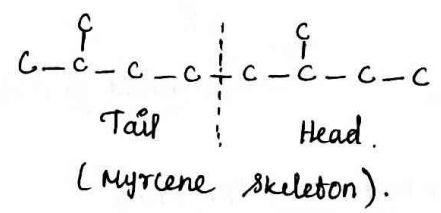 C C
C – C – C – C – C – C – C – C
Tail Head.
(Myrcene skeleton).